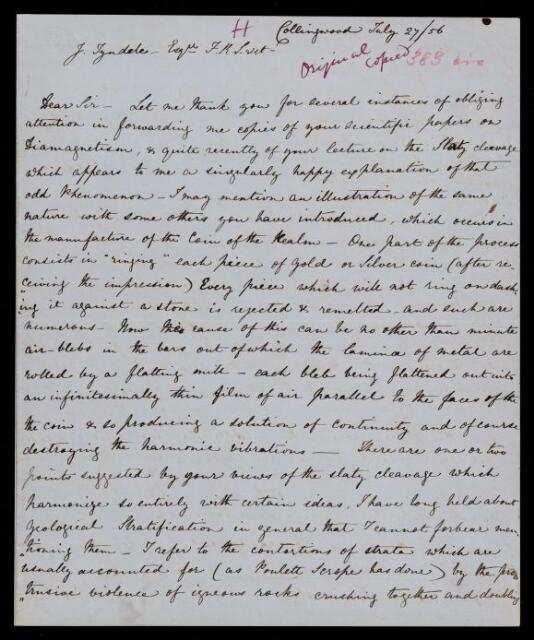 H Collingwood July 27/56
J. Tyndale - Esqre F.R.S. &ct
Original copied 383
Dear Sir - Let me thank you for several instances of obliging
attention in forwarding me copies of your scientific papers on
Diamagnetism, & quite recently of your lecture on the Slaty cleavage
which appears to me a singularly happy explanation of that
odd Phenomenon - I may mention an illustration of the same
nature with some others you have introduced, which occurs in
the manufacture of the Coin of the Realm - One part of the process
consists in "ringing" each piece of Gold or Silver coin (after re-
ceiving the impression) Every piece which will not ring on dash-
"ing it against a stone is rejected & remelted - and such are
numerous - Now the cause of this can be no other than minute
air-blebs in the bars out of which the laminæ of metal are
rolled by a flatting mill - each bleb being flattened out into
an infinitesimally thin film of air parallel to the faces of the
the coin & so producing a solution of continuity and of course
destroying the harmonic vibrations - There are one or two
points suggested by your views of the slaty cleavage which
harmonize so entirely with certain ideas, I have long held about
Geological Stratification in general that I cannot forbear men-
"tioning them - I refer to the contortions of strata which are
usually accounted for (as Poulett Scrope has done) by the pro-
"trusive violence of igneous rocks crushing together and doubling